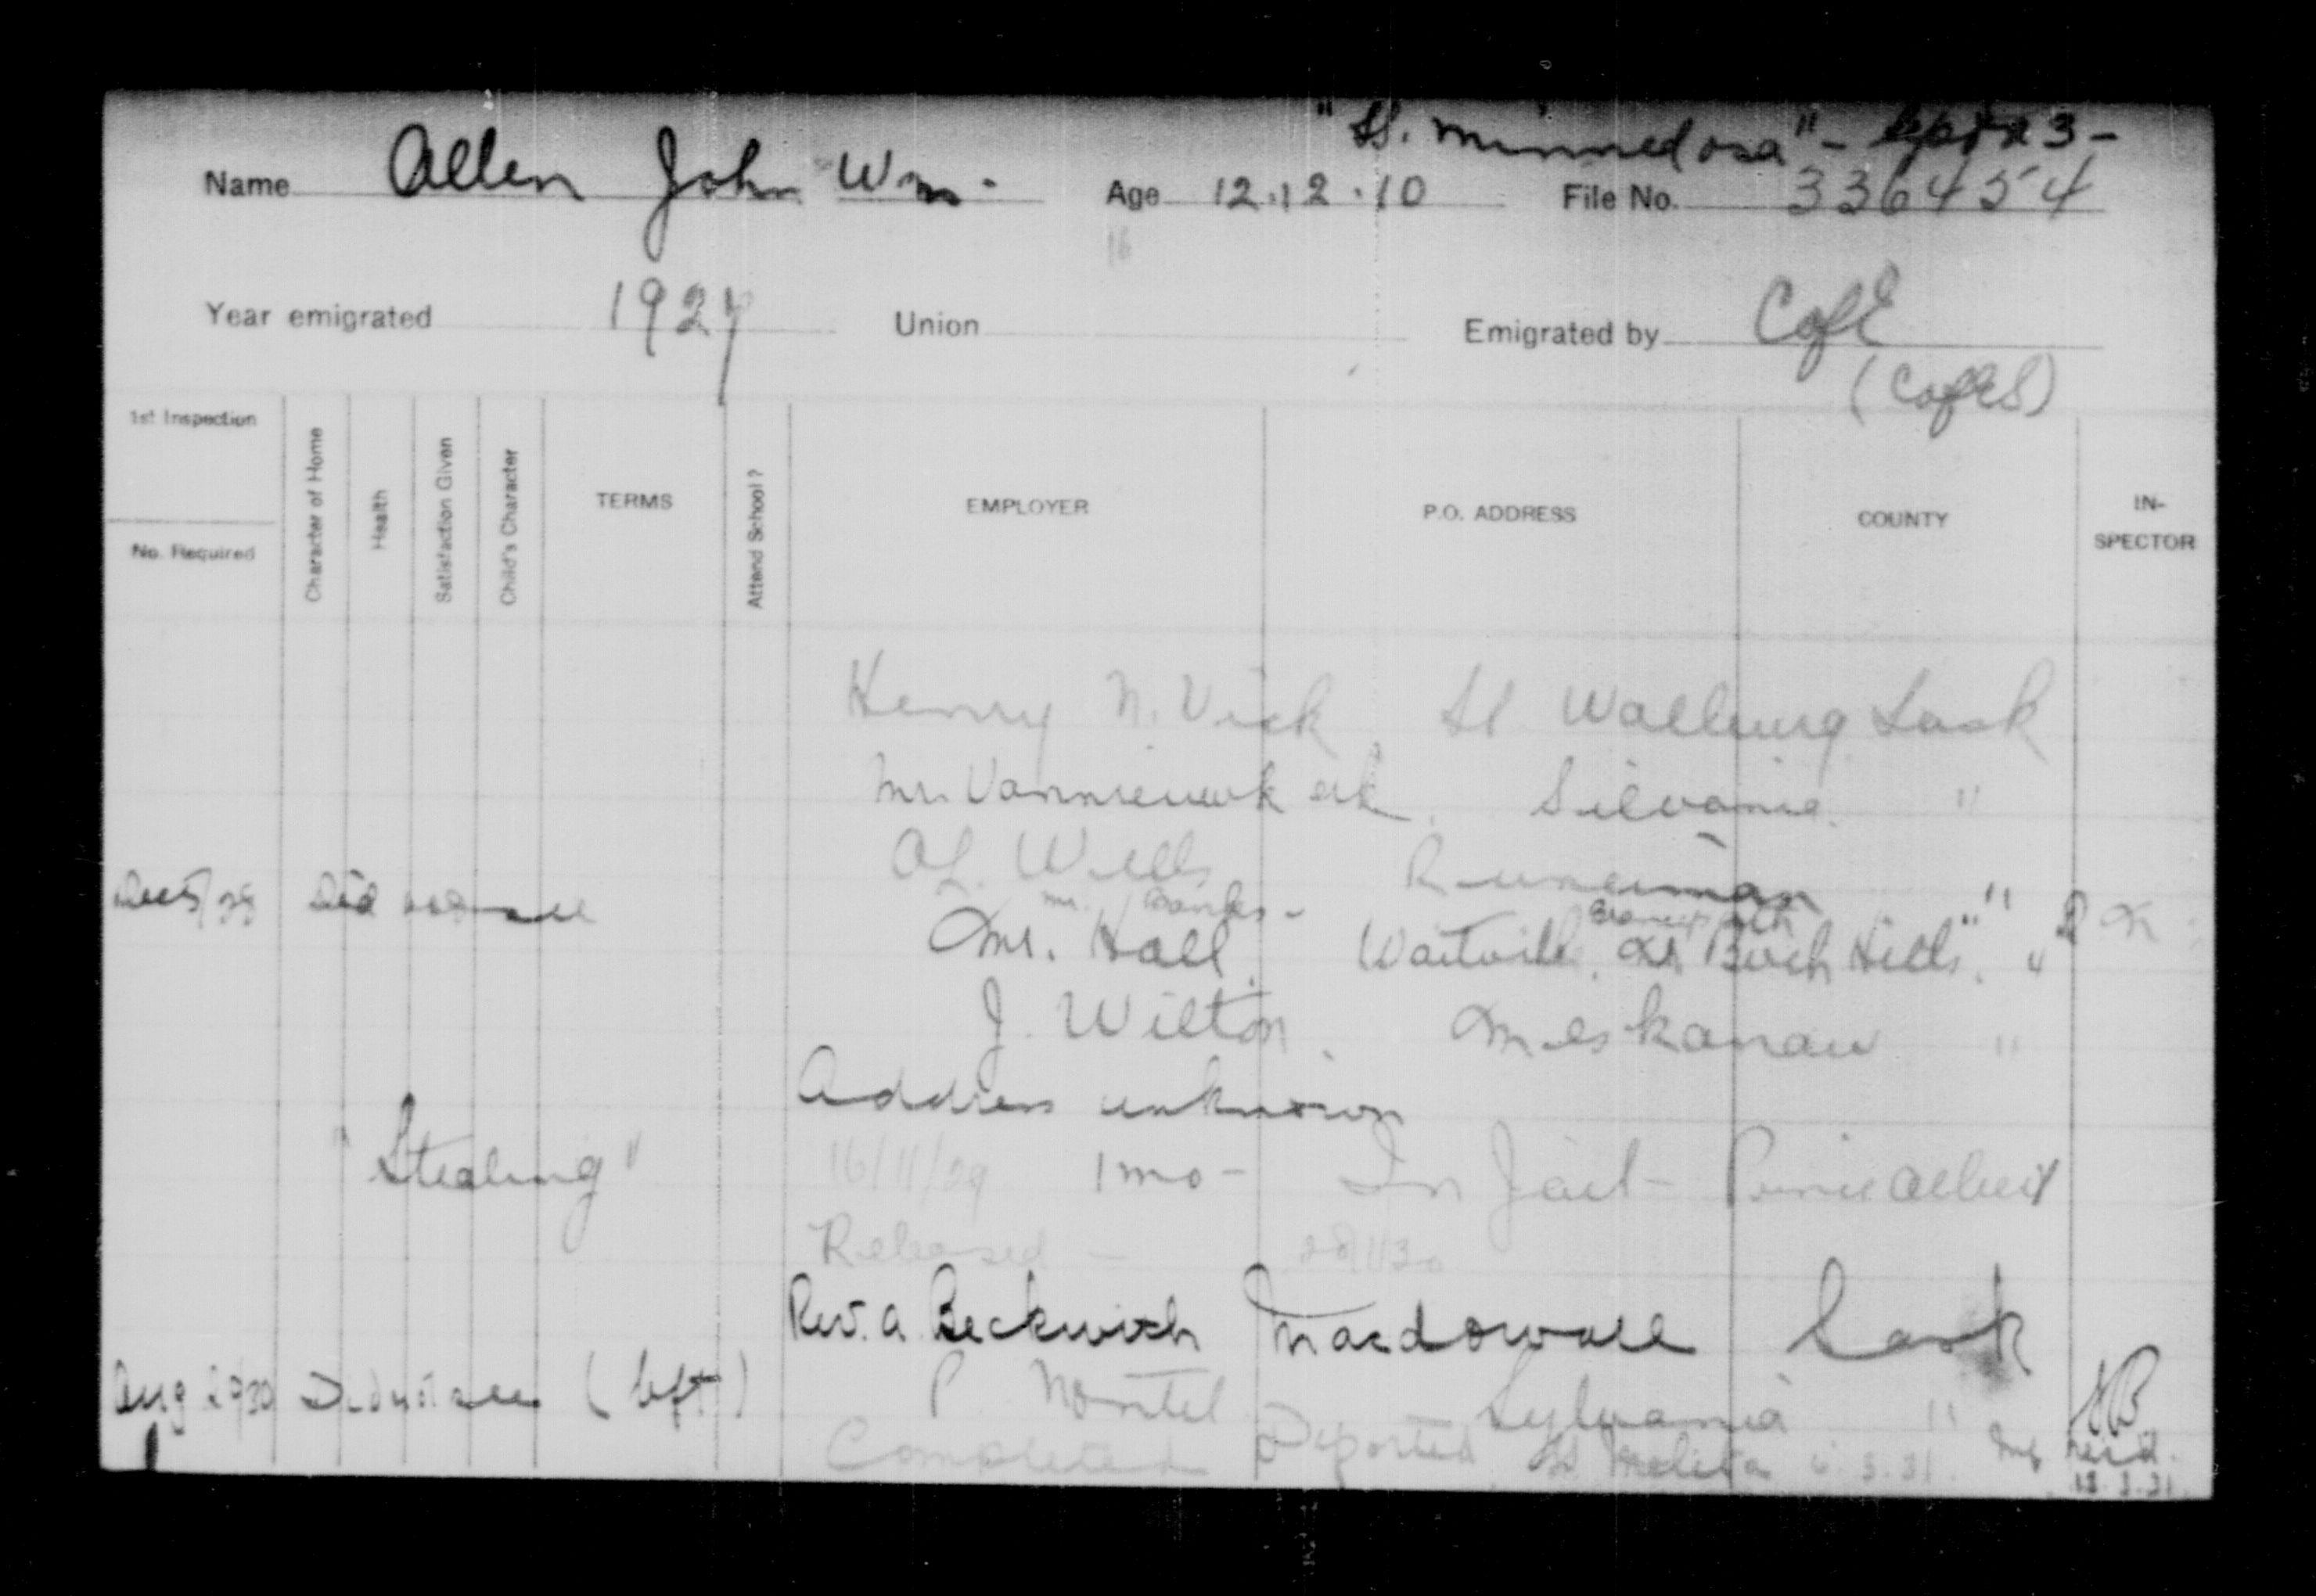 "SS. Minnedosa" - Sept 23 -
Name Allen John Wm. Age 12.12.10 File No. 336454
16
Year emigrated 1927 Union Emigrated by CofE
(CofES)
1st Inspection
No. Required
Character of Home
Health
Satisfaction Given
Child's Character
TERMS
Attend School?
EMPLOYER
P.O. ADDRESS
COUNTY
IN-
SPECTOR
Henry N. Vick St Walburg Sask
Mr. Vannieuwkerk Silvania "
A.L. Wells Runciman "
Mr. Banks -
Dec 5/28 Did not see Mr. Hall Waitville, Birch Hills "
J. Wilton Meskanaw "
Address unknown
"Stealing" 16/11/29 1 mo - In Jail - Prince Albert
Released -
Rev. A. Beckwith Macdowall Sask
Aug 30 Did not see (left) P. Montel Sylvania "
Completed Deported SS Melita 6.3.31.
13.3.31